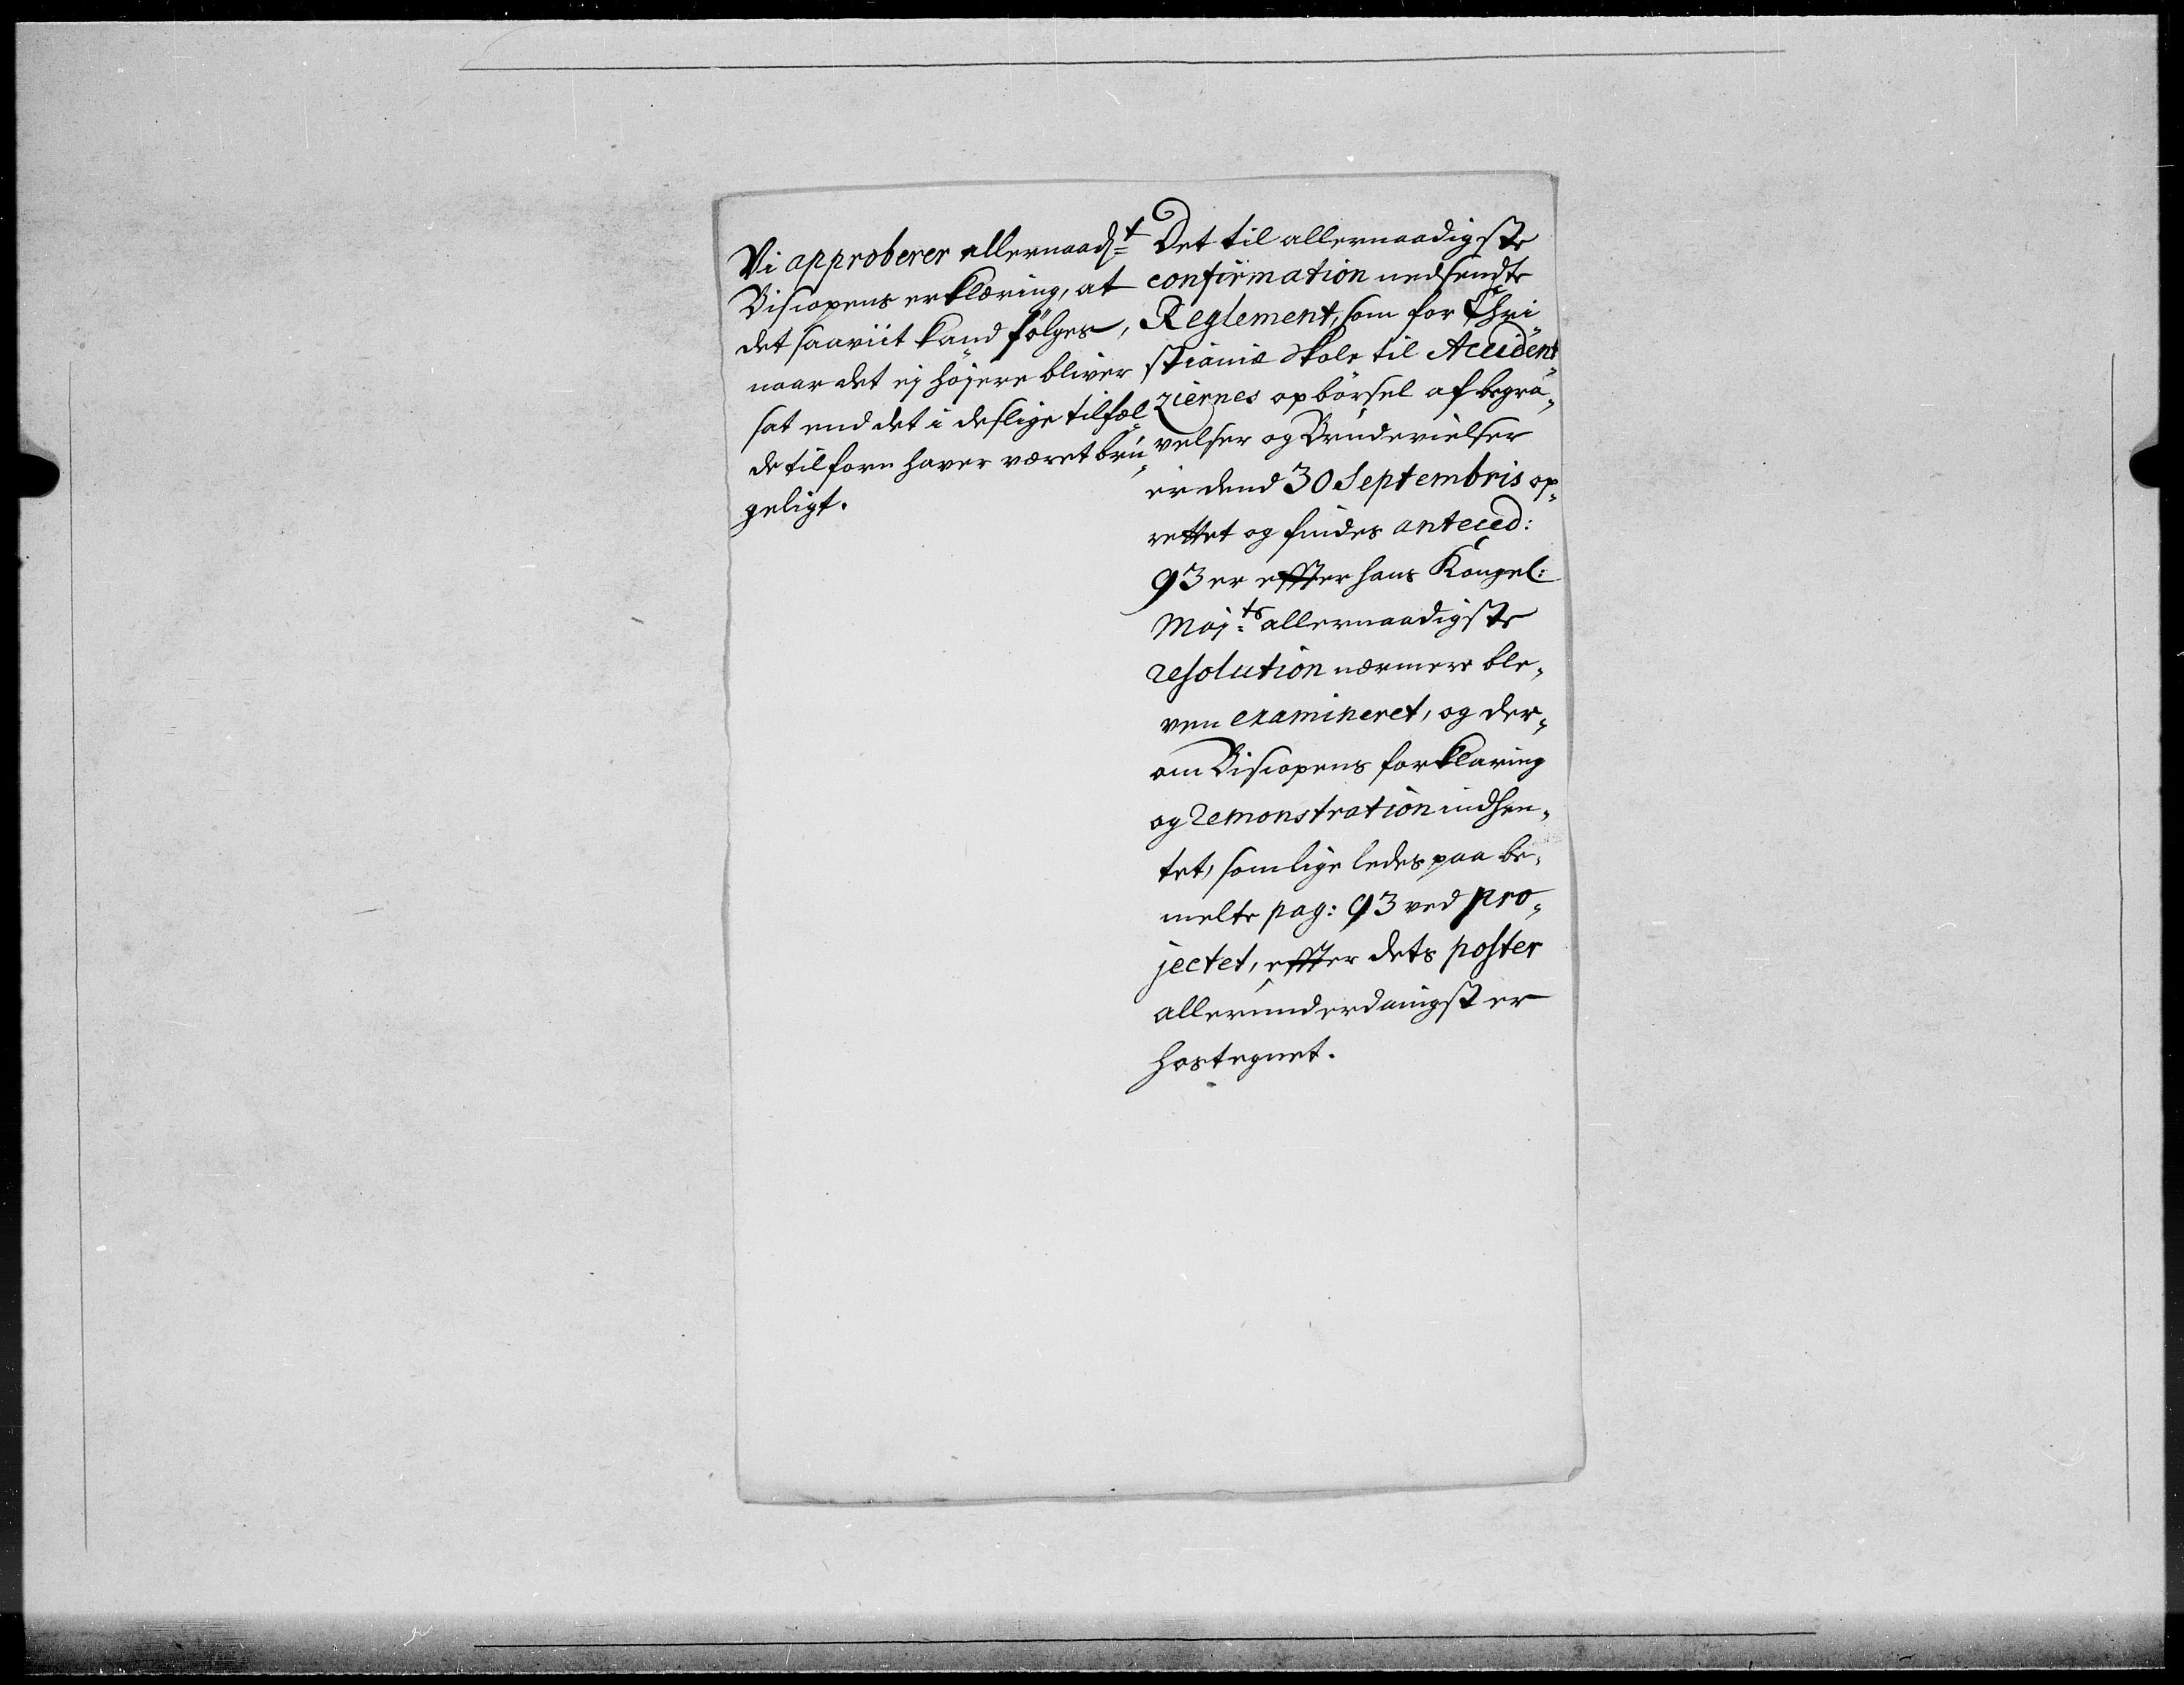 Vi approberer allernaadst
Biscopens erklæring, at
det saaviit kand følges,
naar det ej højere bliver
sat end det i deslige tilfæl„
de tilforn haver været brü„
geligt.
Det til allernaadigste
confirmation nedsendte
Reglement, som for Chri
stiania Skole til Acciden„
ziernes opbørsel af begra„
velser og Brudevielser
er dend 30 Septembris op„
rettet og findes anteced:
93 er effter hans Kongel:
Maj:ts allernaadigste
resolution nærmere ble„
ven examineret, og der„
om Biscopens forklaring
og remonstration indhen„
tet, som lige ledes paa be„
melte pag: 93 ved pro„
jectet, effter dets poster
allerunderdanigst er
hostegnet.